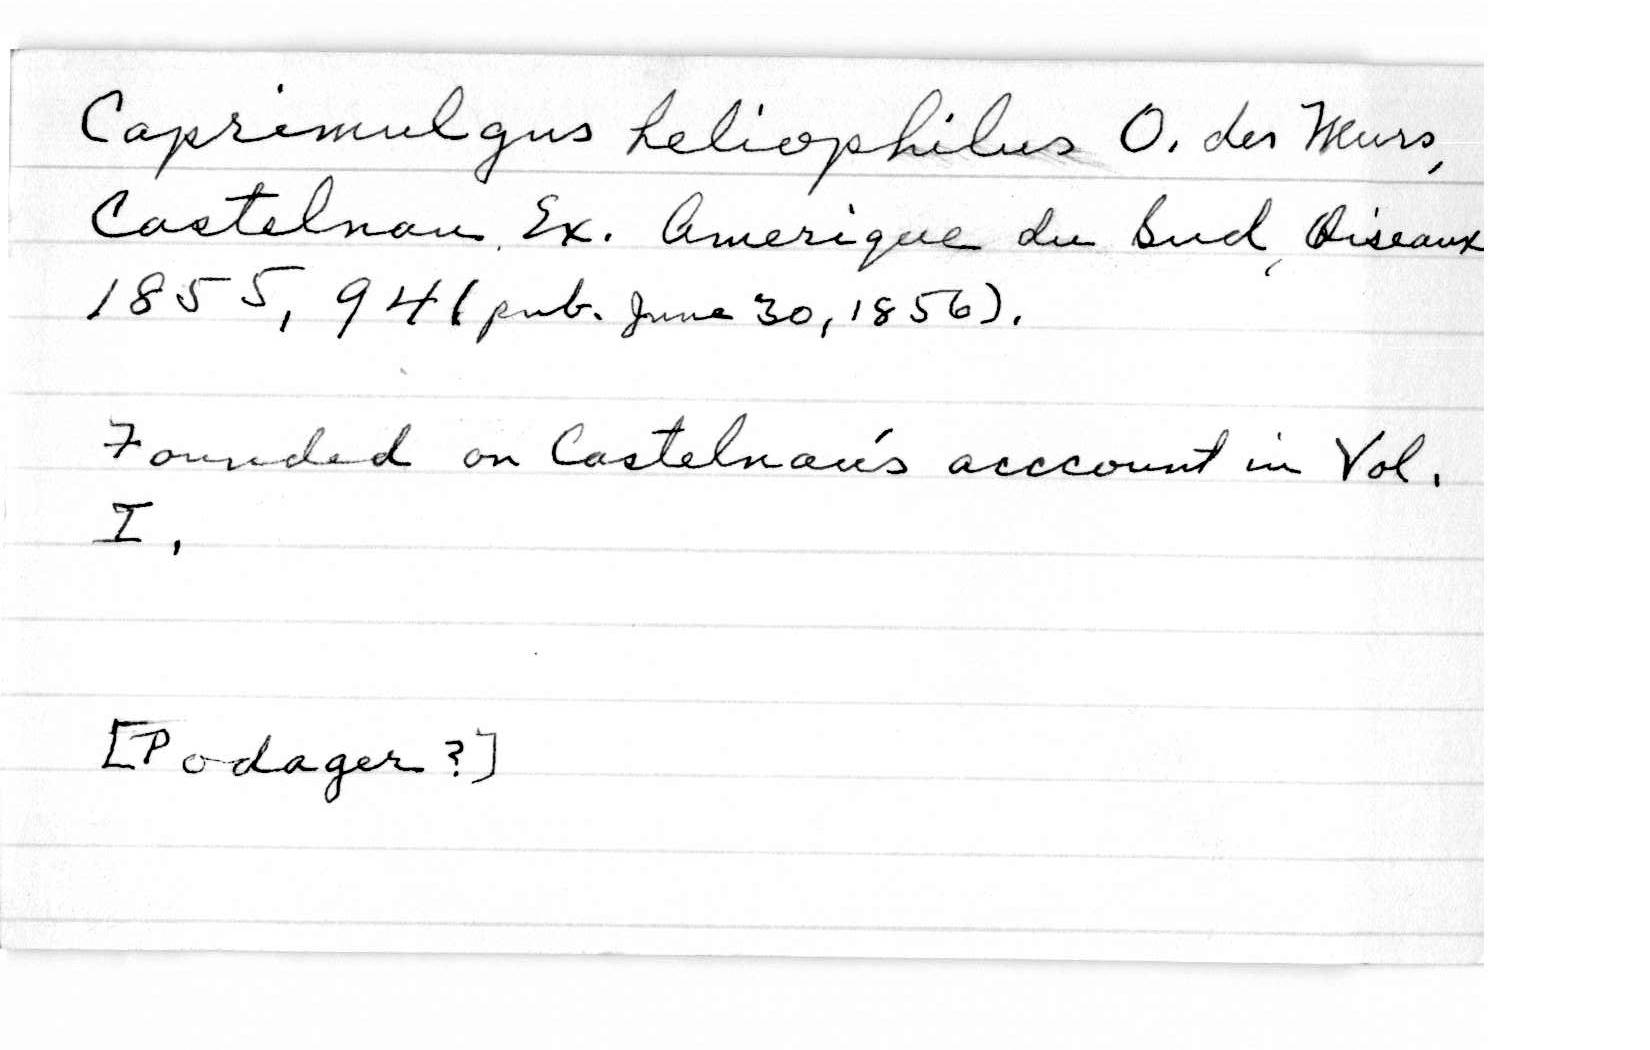 Caprimulgus heliophilus O. des Murs,
Castelnau, Ex. Amerique du Sud, Oiseaux
1855, 94 (pub. June 30, 1856).
Founded on Castelnau's acccount in Vol.
I,
[Podager?]